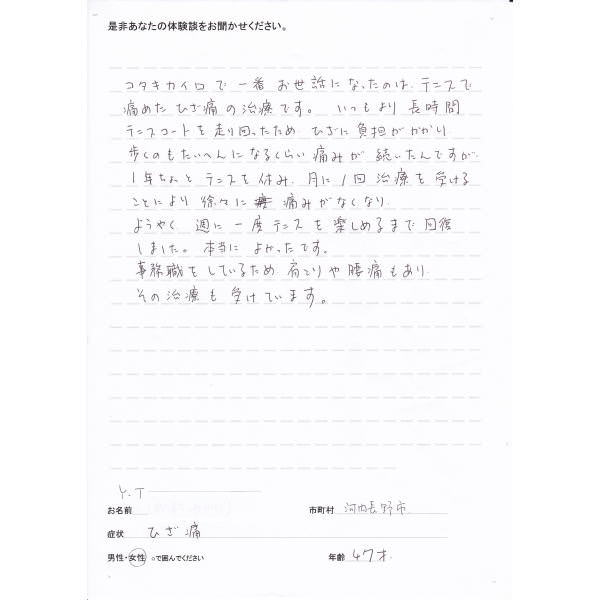 是非あなたの体験談をお聞かせください。
コタキカイロで一番お世話になったのは、テニスで
痛めたひざ痛の治療です。いつもより長時間
テニスコートを走り回ったためひざに負担がかかり
歩くのもたいへんになるくらい痛みが続いたんですが、
1年ちかくテニスを休み、月に1回治療を受ける
ことにより徐々に痛みがなくなり、
ようやく週に一度テニスを楽しめるまで回復
しました。本当によかったです。
事務職をしているため肩こりや腰痛もあり
その治療も受けています。
Y.T
お名前
市町村 河内長野市
症状 ひざ痛
男性・女性 ○で囲んでください
年齢 47才